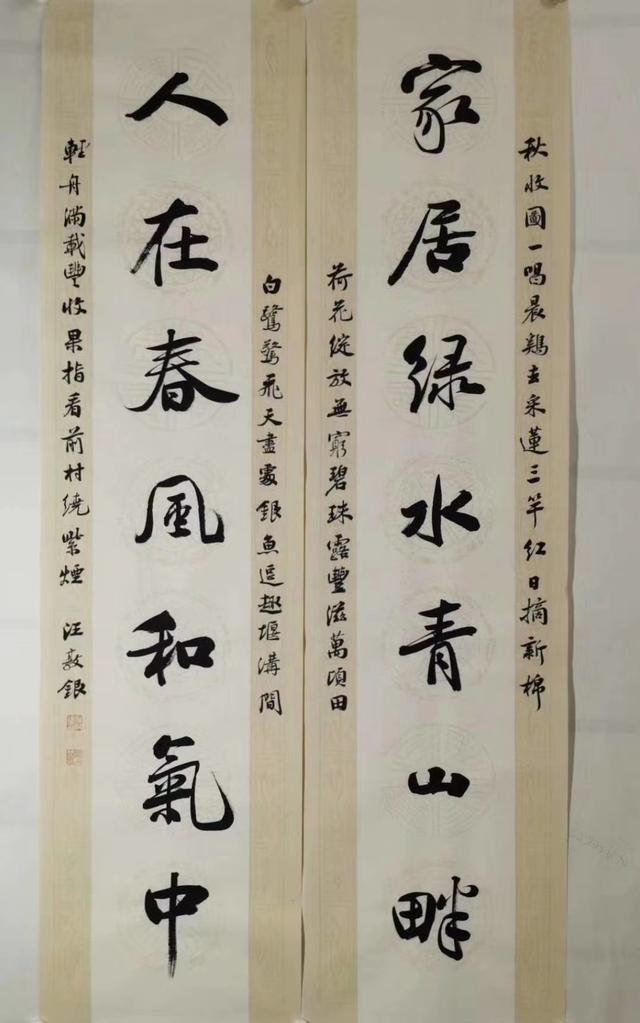 家居绿水青山畔
人在春風和氣中
秋收圖一唱晨鷄去采蓮三竿红日摘新棉
荷花绽放無窮碧珠露豐滋萬頃田
白鷺驚飛天盡處銀魚逗趣堰溝間
輕舟滿載豐收果指看前村繞紫煙 汪敦銀